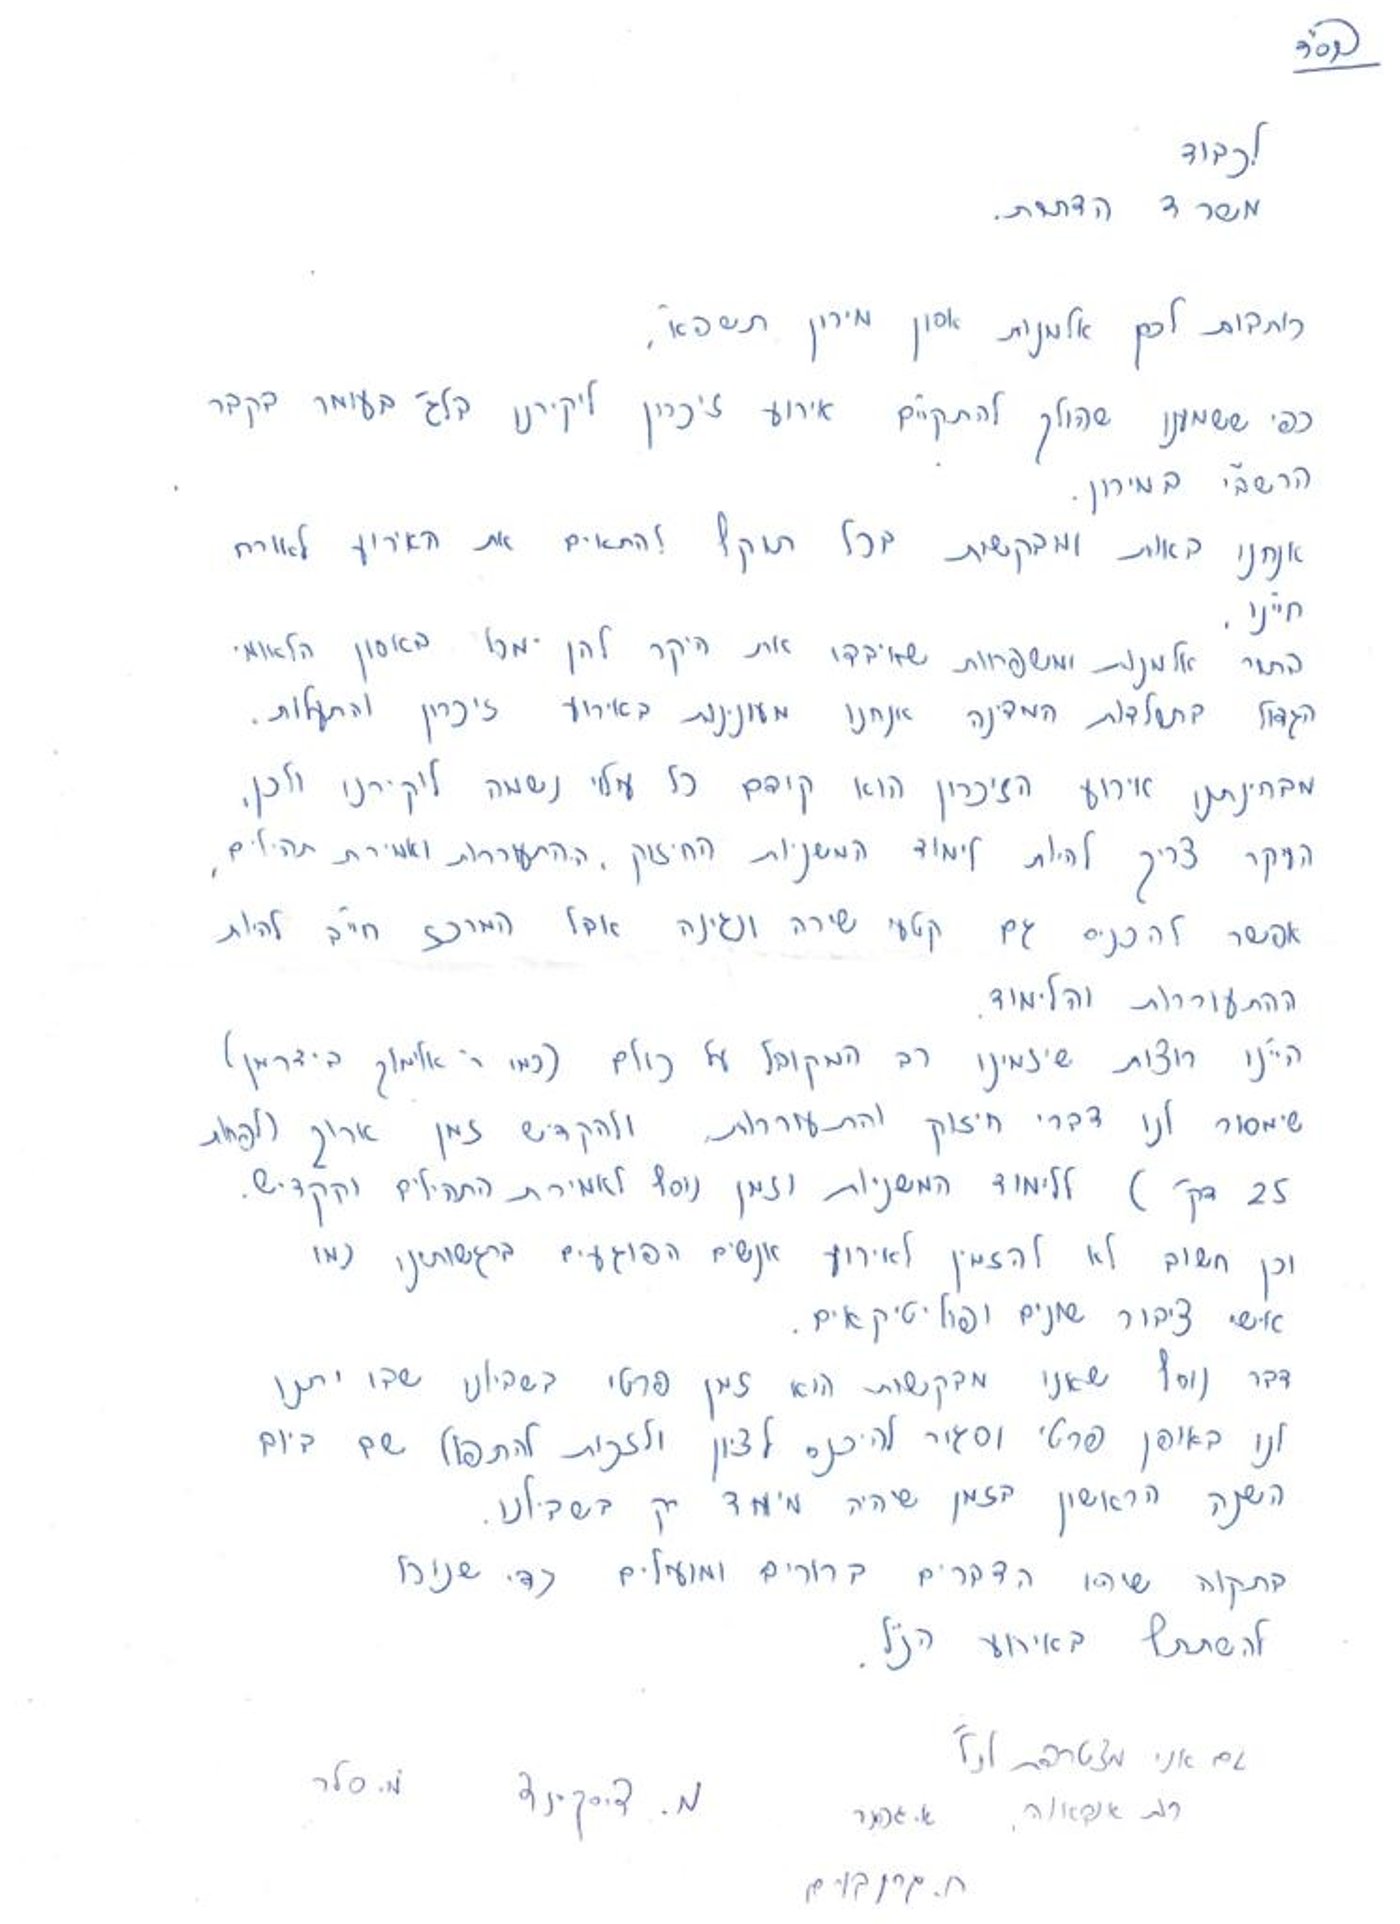 בס"ד
לכבוד
משרד הדתות.
כותבות לכם אלמנות אסון מירון תשפא",
כפי ששמענו שהולך להתקיים אירוע זיכרון ליקירנו בלג" בעומר בקבר
הרשב"י במירון.
אנחנו באות ומבקשות בכל תוקף להתאים את האירוע לאורח
חיינו,
בתור אלמנות ומשפחות שאיבדו את היקר להן מכל באסון הלאומי
הגדול בתולדות המדינה אנחנו מעונינות באירוע זיכרון והתעלות.
מבחינתנו אירוע הזיכרון הוא קודם כל עילוי נשמה ליקירנו ולכן,
העיקר צריך להיות לימוד המשניות החיזוק, ההתעוררות ואמירת תהילים,
אפשר להכניס גם קטעי שירה ונגינה אבל המרכז חייב להיות
ההתעוררות והלימוד.
היינו רוצות שיזמינו רב המקובל על כולם (כמו ר' אלימלך בידרמן)
שימסור לנו דברי חיזוק והתעוררות, ולהקדיש זמן ארוך (לפחות
25 דק') ללימוד המשניות וזמן נוסף לאמירת התהילים וקדיש.
וכן חשוב לא להזמין לאירוע אנשים הפוגעים ברגשותינו כמו
אישי ציבור שונים ופוליטיקאים.
דבר נוסף שאנו מבקשות הוא זמן פרטי בשבילנו שבו יתנו
לנו באופן פרטי וסגור להיכנס לציון ולזכות להתפלל שם ביום
השנה הראשון בזמן שיהיה מיועד רק בשבילנו.
בתקוה שיהיו הדברים ברורים ומועילים כדי שנוכל
להשתתף באירוע הנ"ל.
גם אני מצטרפת לנ"ל
רות אמבאוה, א. גבנר מ. דיסקינד מ. סלר
ח.